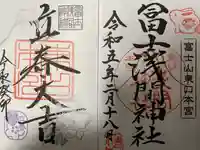 冨士浅間神社
富士山東口本宮
令和五年二月十八日
立春大吉
令和癸卯